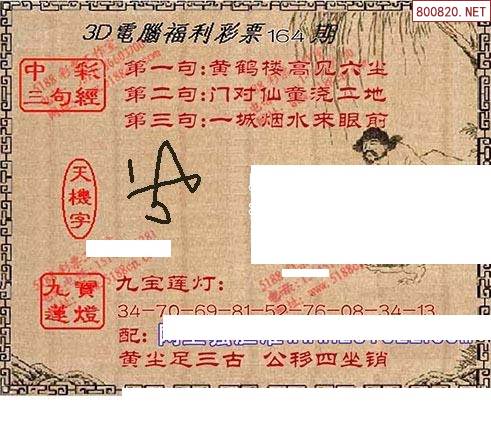 800820.NET
3D電腦福利彩票164期
中彩
三句經
第一句:黄鹤楼高见六尘
第二句:门对仙童浇二地
第三句:一城烟水来眼前
天機字
九寶
蓮燈
九宝莲灯:
34-70-69-81-52-76-08-34-13
配:
黄尘足三古 公移四坐销